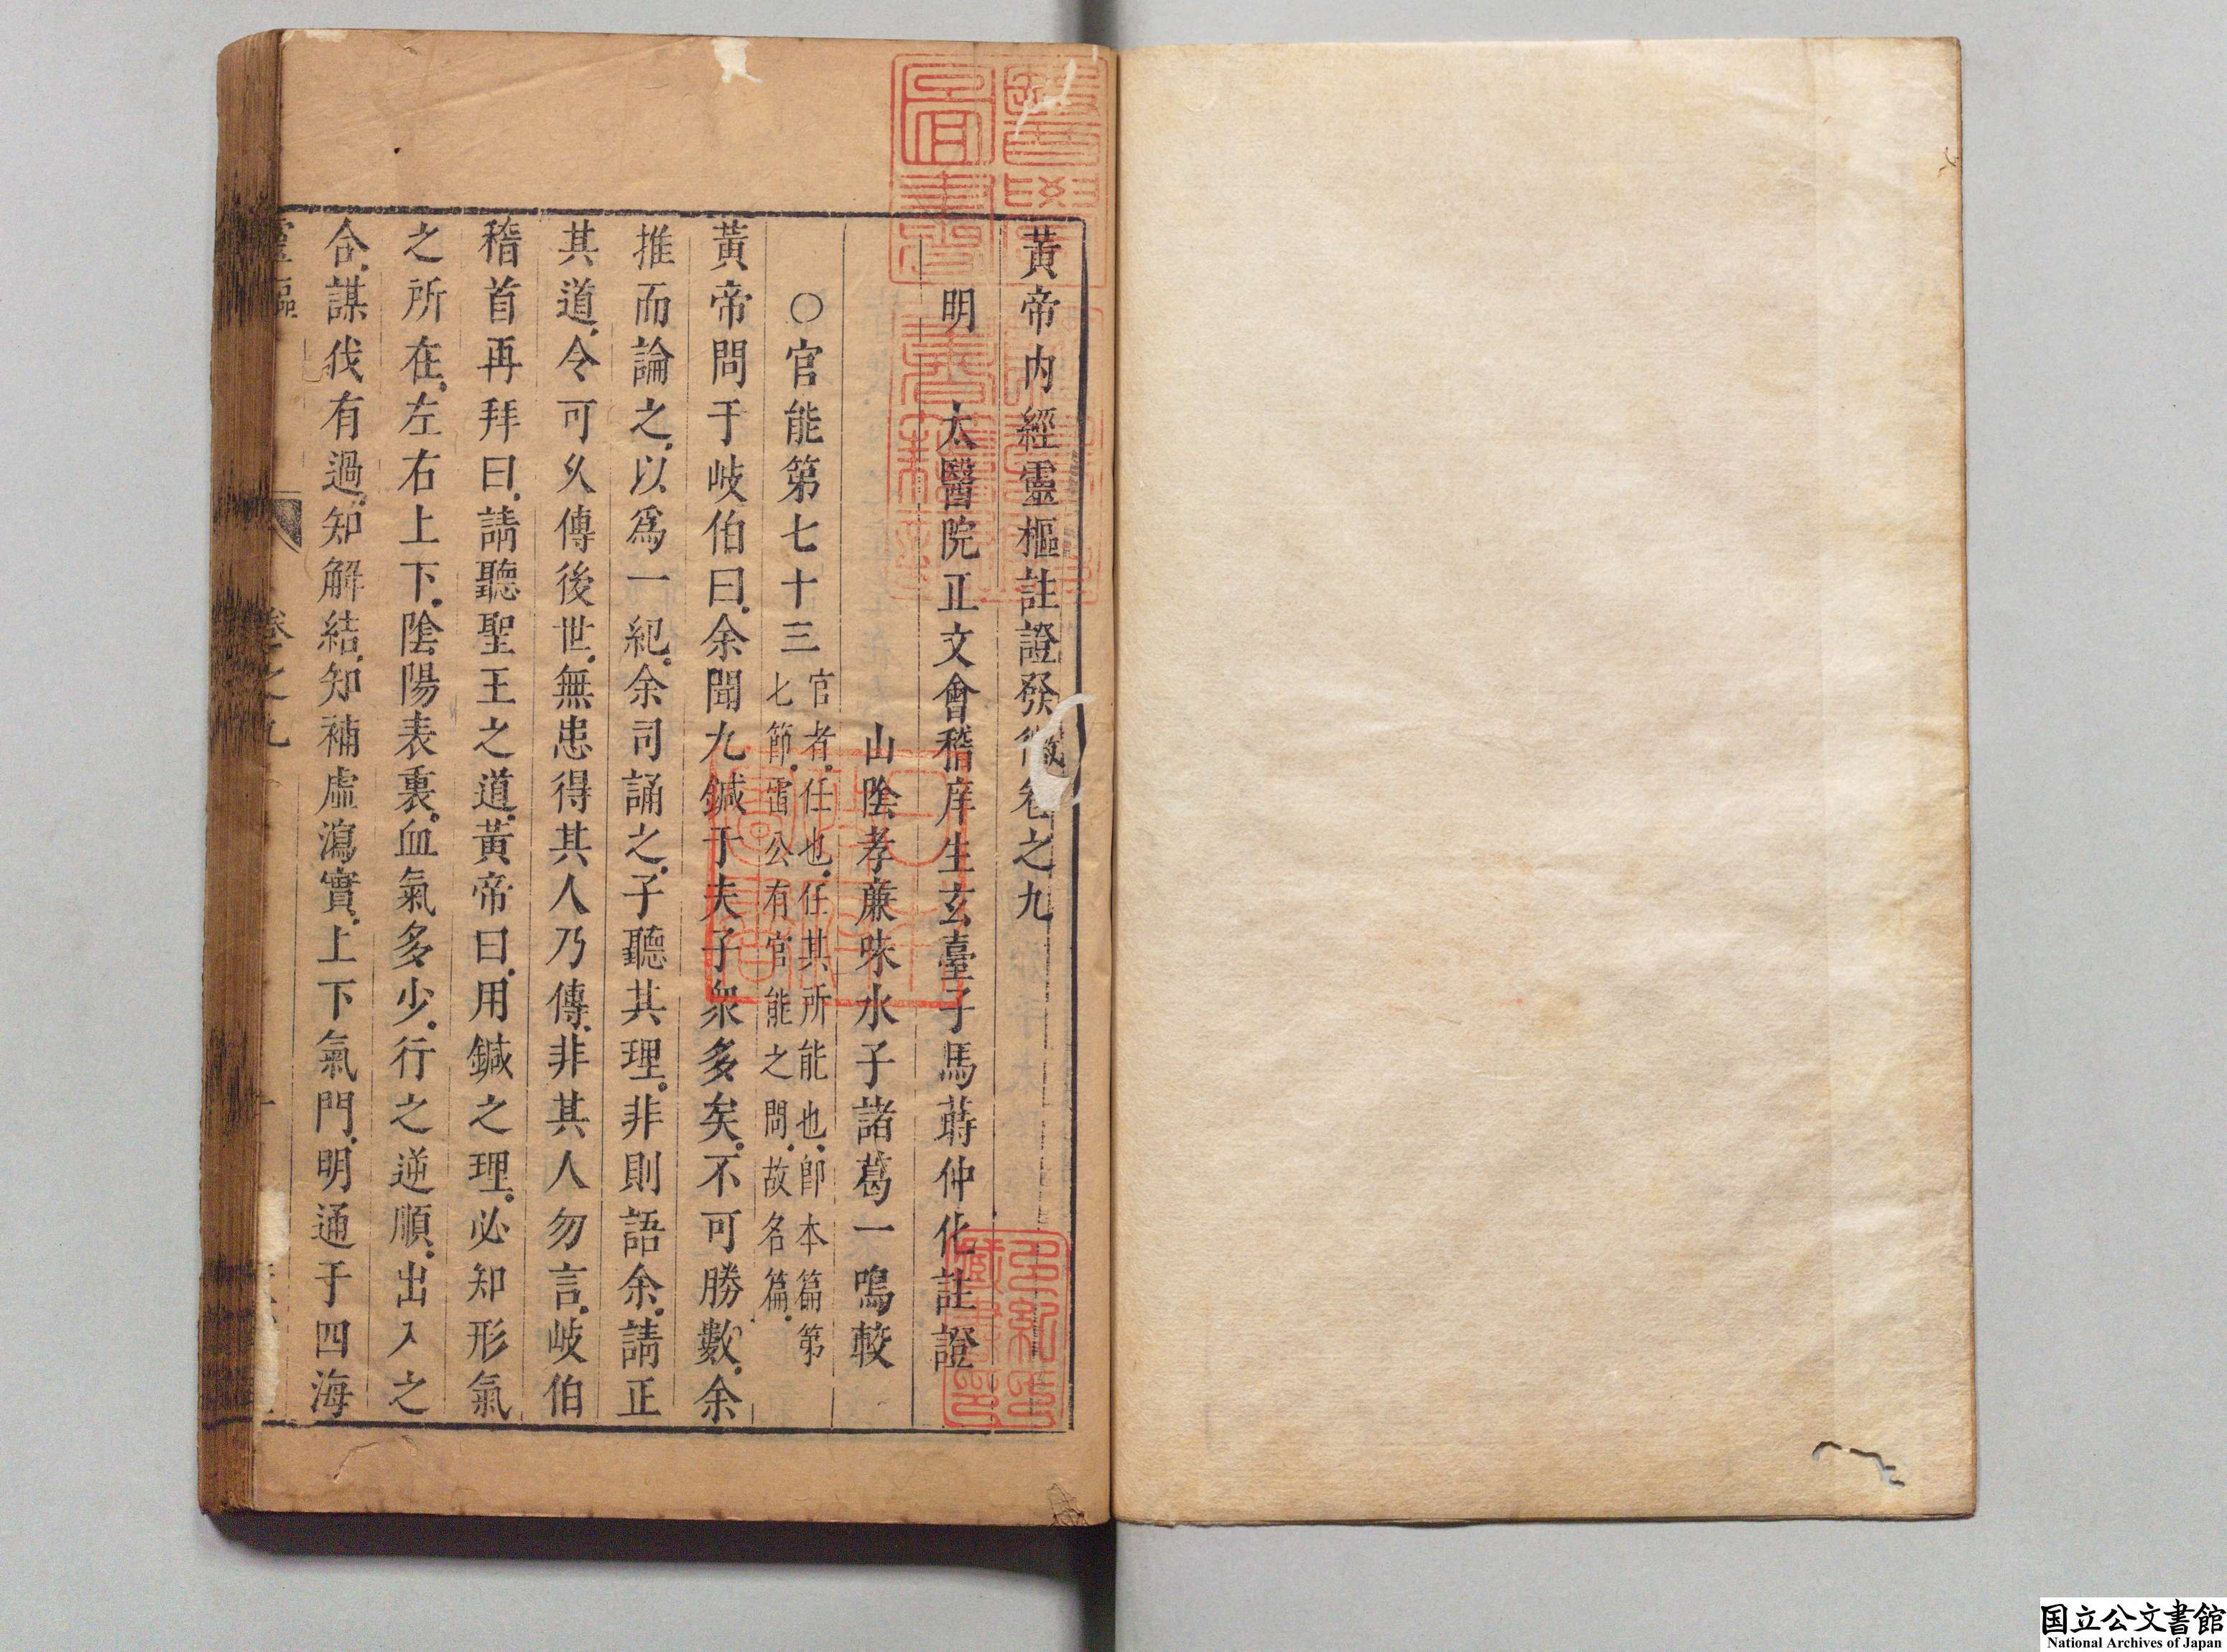 黃帝內經靈樞註證發微卷之九
明 太醫院正文會稽庠生玄臺子馬蒔仲化註證
山陰孝亷味水子諸葛一鳴較
〇官能第七十三
官者.任也.任其所能也.卽本篇第
七節.雷公有官能之問.故名篇.
黃帝問于岐伯曰.余聞九鍼于夫子衆多矣.不可勝數.余
推而論之.以爲一紀.余司誦之.子聽其理.非則語余.請正
其道.令可久傳後世.無患得其人乃傳.非其人勿言.岐伯
稽首再拜曰.請聽聖王之道.黃帝曰.用鍼之理.必知形氣
之所在.左右上下.陰陽表裏.血氣多少.行之逆順.出入之
合.謀伐有過.知解結.知補虛瀉實.上下氣門.明通于四海
靈樞
卷之九
一
国立公文書館
National Archives of Japan